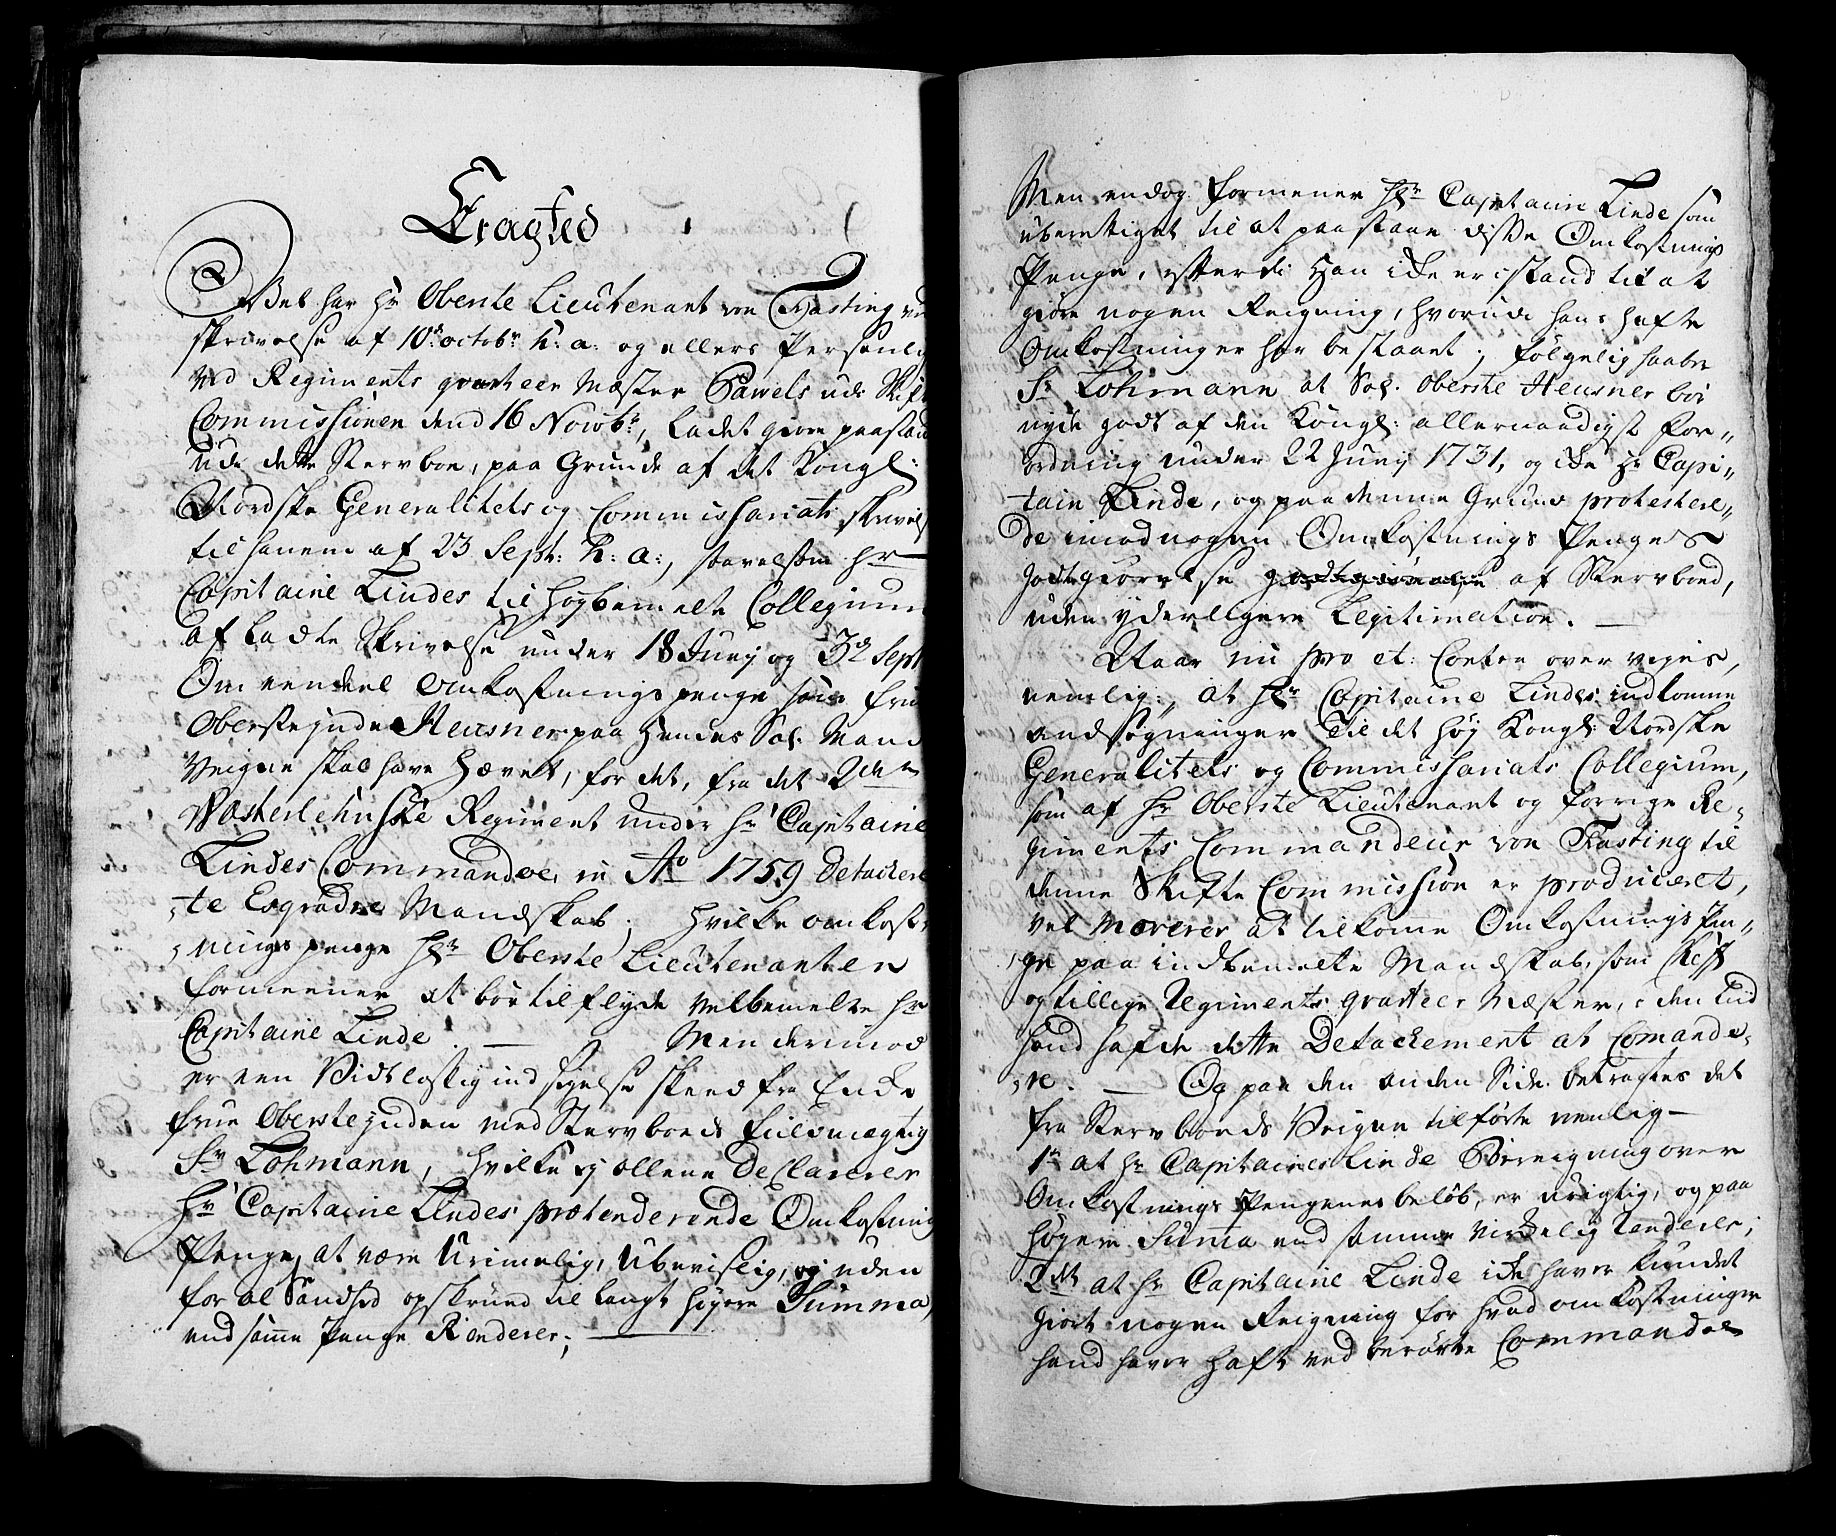 Eragted
Vel har Hr Oberste Lieutenant von Fasting ved
skrivelse af 10de octobr h: a: og ellers Personlig
ved Regiments qvarteer Mæster Pawels udi Skift
Commissionen dend 16 Novbr, ladet giøre paastand
udi dette Stervboe, paa Grunde af det Kongl:
Nordske Generalitets og Commissariats skrivelse
til hanem af 23 Sept: h: a:, saavelsom Hr
Capitaine Lindes til høybemelte Collegium
afladte Skrivelse under 18 Juny og 3de Sept
Om eendeel Omkostnings penge som Frue
Oberstejnde Heusner paa Hendes Sal. Mands
Veigne skal have Hævet, for det, fra det 2det
Westerlehnske Regiment under Hr Capitaine
Lindes Commandoe, in Ao 1759 Detachere
-te Mandskab; hvilke omkost-
-nings penge Hr Oberste Lieutenanten
formeener at bør tilflyde velbemelte Hr
Capitaine Linde. — Men derimod
er een Vidtløftig indsigelse skeed fra Enke
frue Oberstejnden med Stervboeds fuldmægtig
Sr Lohmann, hvilke ej allene Declarerer
Hr Capitaine Lindes prætenderende Omkostnings
Penge, at være Urimelig, Ubevislig, og uden
for al Sandhed opskrued til langt høyere Summa,
end samme Penge Renderer; —
Men endog formener Hr Capitaine Linde som
uberettiget til at paastaae disse Omkostnings
Penge, efterdi Han icke er istand til at
giøre nogen Reigning, hvorudi hans hafte
Omkostninger har bestaaet; følgelig haaber
Sr Lohmann at Sal. Oberste Heusner bør
nyde godt af den Kongl: allernaadigst For-
ordning under 22 Juny 1731, og icke Hr Capi-
-tain Linde, og paa denne Grund protestere-
de imod nogen Omkostnings Penges
godtgiørelse af Stervboed,
uden yderligere Legitimation. —
Naar nu pro et: Contra overvejes,
nemlig:, at Hr Capitaine Lindes indkomne
andsøgninger til det høy Kongl: Nordske
Generalitets og Commissariats Collegium,
som af Hr Oberste Lieutenant og forrige Re-
giments Commandeur von Fasting til
denne Skifte Commission er produceret,
vel moverer at tilkomme Omkostnings Pen-
ge paa indbemelte Mandskab, som Chef
og tillige Regiments qvarteer Mæster, i den tid
hand hafde dette Detachement at Comande-
-re. — Og paa den anden Side betragtes det
fra Stervboeds Veigne tilførte nemlig —
1te at Hr Capitaine Linde Bereigning over
Omkostnings Pengenes beløb, er urigtig, og paa
høyere Summa end samme virkelig Renderer;
2det at Hr Capitaine Linde icke haver kundet
giort nogen Reigning for hvad omkostninger
hand haver haft ved berørte Commandoe